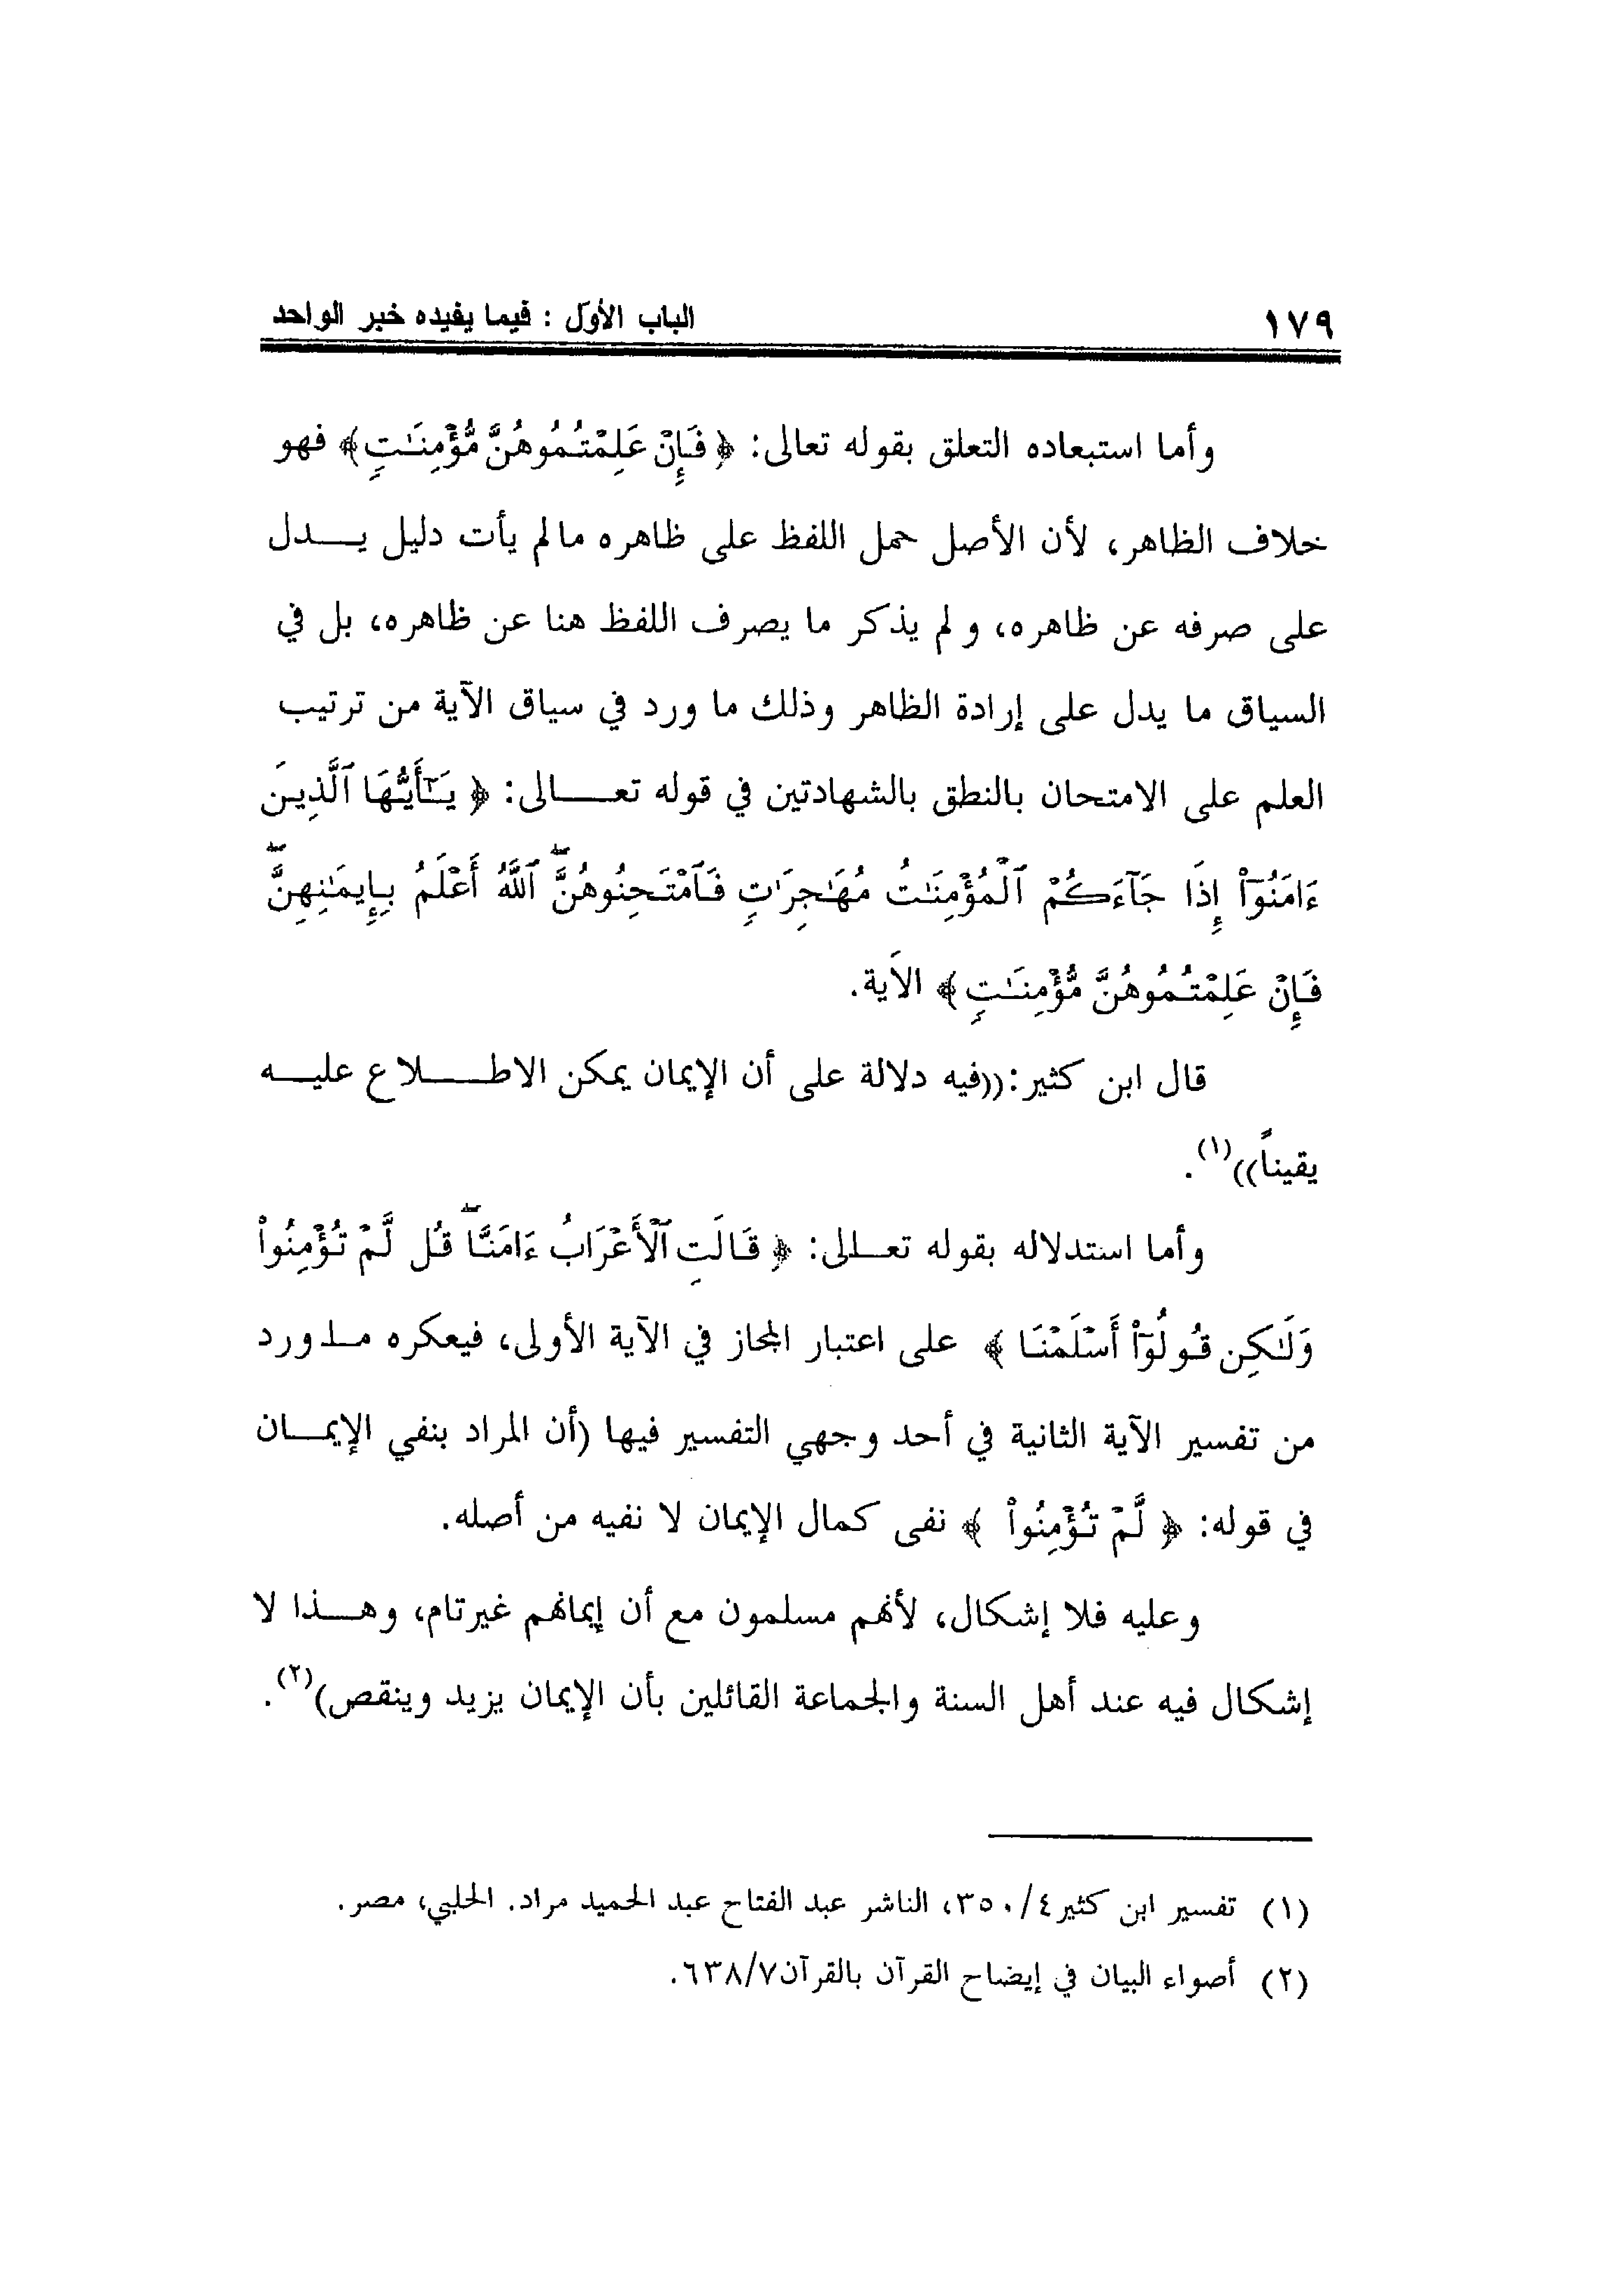 ١٧٩ الباب الأول : فيما يفيده خبر الواحد
وأما استبعاده التعلق بقوله تعالى: ﴿ فَإِنْ عَلِمْتُمُوهُنَّ مُؤْمِنَـٰتٍ﴾ فهو
خلاف الظاهر، لأن الأصل حمل اللفظ على ظاهره مالم يأت دليل يـــدل
على صرفه عن ظاهره، و لم يذكر ما يصرف اللفظ هنا عن ظاهره، بل في
السياق ما يدل على إرادة الظاهر وذلك ما ورد في سياق الآية من ترتيب
العلم على الامتحان بالنطق بالشهادتين في قوله تعـــالى: ﴿ يَـٰٓأَيُّهَا ٱلَّذِينَ
ءَامَنُوٓا۟ إِذَا جَآءَكُمُ ٱلْمُؤْمِنَـٰتُ مُهَـٰجِرَٰتٍ فَٱمْتَحِنُوهُنَّ ۖ ٱللَّهُ أَعْلَمُ بِإِيمَـٰنِهِنَّ ۖ
فَإِنْ عَلِمْتُمُوهُنَّ مُّؤْمِنَـٰتٍ ﴾ الآية.
قال ابن كثير:((فيه دلالة على أن الإيمان يمكن الاطـــلاع عليـــه
يقيناً))(١).
وأما استدلاله بقوله تعـالى: ﴿ قَالَتِ ٱلْأَعْرَابُ ءَامَنَّا ۖ قُل لَّمْ تُؤْمِنُوا۟
وَلَـٰكِن قُولُوٓا۟ أَسْلَمْنَا ﴾ على اعتبار المجاز في الآية الأولى، فيعكره مـا ورد
من تفسير الآية الثانية في أحد وجهي التفسير فيها (أن المراد بنفي الإيمـــان
في قوله: ﴿ لَّمْ تُؤْمِنُوا۟ ﴾ نفى كمال الإيمان لا نفيه من أصله.
وعليه فلا إشكال، لأنهم مسلمون مع أن إيمانهم غيرتام، وهـــذا لا
إشكال فيه عند أهل السنة والجماعة القائلين بأن الإيمان يزيد وينقص)(٢).
(١) تفسير ابن كثير٣٥٠/٤، الناشر عبد الفتاح عبد الحميد مراد. الحلبي، مصر.
(٢) أصواء البيان في إيضاح القرآن بالقرآن٦٣٨/٧.